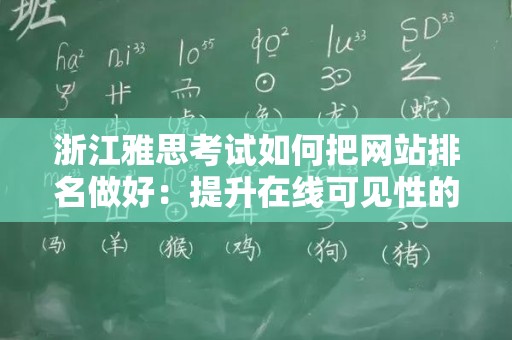 班
ha² ni³³ lo⁵⁵ qo² lu³³ SD³³
(虎) (兔) (龙) (蛇)
浙江雅思考试如何把网站排
名做好：提升在线可见性的
(马) (羊) (猴) (鸡) (狗) (猪)